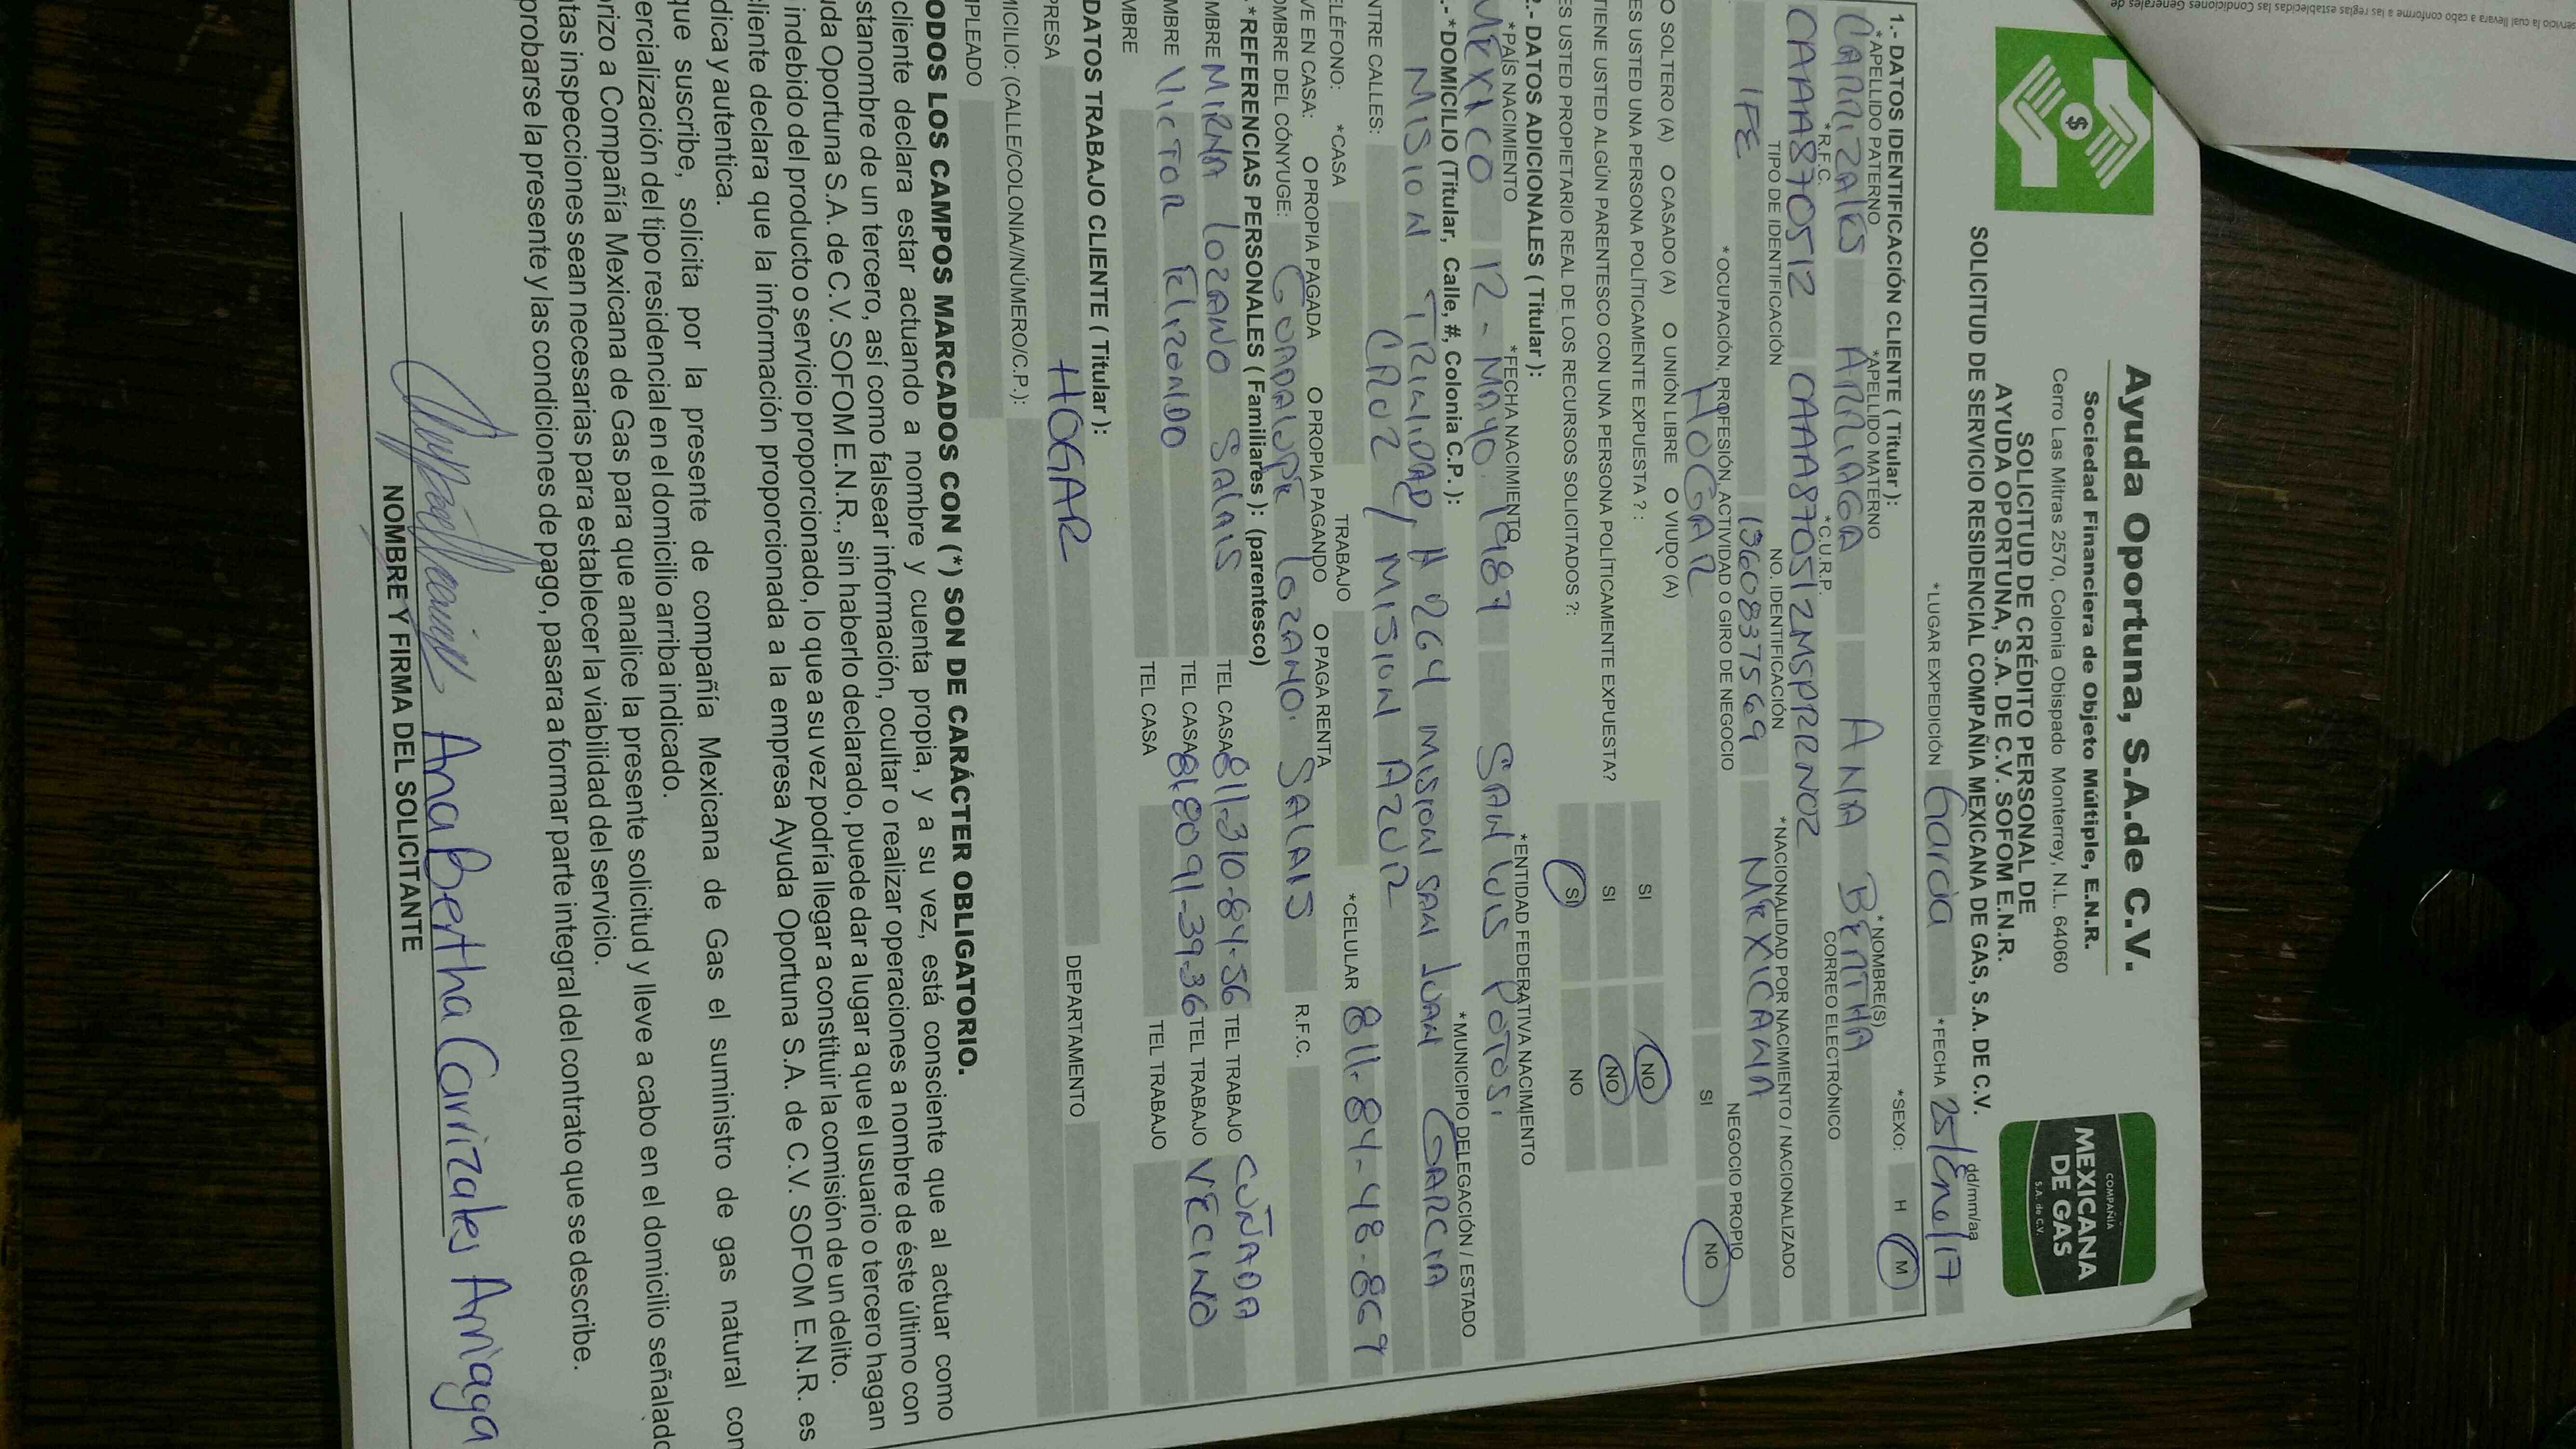 servicio la cual llevara a cabo conforme a las reglas establecidas las Condiciones Generales de
Ayuda Oportuna, S.A.de C.V.
Sociedad Financiera de Objeto Múltiple, E.N.R.
Cerro Las Mitras 2570, Colonia Obispado Monterrey, N.L. 64060
SOLICITUD DE CRÉDITO PERSONAL DE
AYUDA OPORTUNA, S.A. DE C.V. SOFOM E.N.R.
SOLICITUD DE SERVICIO RESIDENCIAL COMPAÑIA MEXICANA DE GAS, S.A. DE C.V.
COMPAÑÍA
MEXICANA
DE GAS
S.A. de C.V.
dd/mm/aa
*LUGAR EXPEDICIÓN García *FECHA 25/Eno/17
1.- DATOS IDENTIFICACIÓN CLIENTE ( Titular ): *SEXO: H M
*APELLIDO PATERNO *APELLIDO MATERNO *NOMBRE(S)
CARRIZALES ARRIAGA ANA BERTHA
*R.F.C. *C.U.R.P. CORREO ELECTRÓNICO
CAAA870512 CAAA870512MSPRRN02
TIPO DE IDENTIFICACIÓN NO. IDENTIFICACIÓN *NACIONALIDAD POR NACIMIENTO / NACIONALIZADO
IFE 1360837569 MEXICANA
*OCUPACIÓN, PROFESIÓN, ACTIVIDAD O GIRO DE NEGOCIO NEGOCIO PROPIO
HOGAR SI NO
O SOLTERO (A) O CASADO (A) O UNIÓN LIBRE O VIUDO (A)
ES USTED UNA PERSONA POLÍTICAMENTE EXPUESTA ? : SI NO
TIENE USTED ALGÚN PARENTESCO CON UNA PERSONA POLÍTICAMENTE EXPUESTA? SI NO
ES USTED PROPIETARIO REAL DE LOS RECURSOS SOLICITADOS ?: SI NO
2.- DATOS ADICIONALES ( Titular ):
*PAÍS NACIMIENTO *FECHA NACIMIENTO *ENTIDAD FEDERATIVA NACIMIENTO
MÉXICO 12-MAYO.1987 SAN LUIS POTOSI
.-*DOMICILIO (Titular, Calle, #, Colonia C.P. ): *MUNICIPIO DELEGACIÓN / ESTADO
MISION TRINIDAD, # 264 MISION SAN JUAN GARCIA
NTRE CALLES: CRUZ Y MISION AZUR
ELÉFONO: *CASA TRABAJO *CELULAR 811-84-48-867
VE EN CASA: O PROPIA PAGADA O PROPIA PAGANDO O PAGA RENTA
OMBRE DEL CÓNYUGE: GUADALUPE LOZANO SALAIS R.F.C.
*REFERENCIAS PERSONALES ( Familiares ): (parentesco)
MBRE MIRNA LOZANO SALAIS TEL CASA 811-310-84-56 TEL TRABAJO CUÑADA
MBRE VICTOR ELIZONDO TEL CASA 818091-39-36 TEL TRABAJO VECINO
MBRE TEL CASA TEL TRABAJO
DATOS TRABAJO CLIENTE ( Titular ):
PRESA HOGAR DEPARTAMENTO
MICILIO: (CALLE/COLONIA/NÚMERO/C.P.):
MPLEADO
ODOS LOS CAMPOS MARCADOS CON (*) SON DE CARÁCTER OBLIGATORIO.
cliente declara estar actuando a nombre y cuenta propia, y a su vez, está consciente que al actuar como
stanombre de un tercero, así como falsear información, ocultar o realizar operaciones a nombre de éste último con
uda Oportuna S.A. de C.V. SOFOM E.N.R., sin haberlo declarado, puede dar a lugar a que el usuario o tercero hagan
indebido del producto o servicio proporcionado, lo que a su vez podría llegar a constituir la comisión de un delito.
cliente declara que la información proporcionada a la empresa Ayuda Oportuna S.A. de C.V. SOFOM E.N.R. es
dica y autentica.
que suscribe, solicita por la presente de compañía Mexicana de Gas el suministro de gas natural con
ercialización del tipo residencial en el domicilio arriba indicado.
rizo a Compañía Mexicana de Gas para que analice la presente solicitud y lleve a cabo en el domicilio señalado
ntas inspecciones sean necesarias para establecer la viabilidad del servicio.
probarse la presente y las condiciones de pago, pasara a formar parte integral del contrato que se describe.
Ana Bertha Carrizales Arriaga
NOMBRE Y FIRMA DEL SOLICITANTE